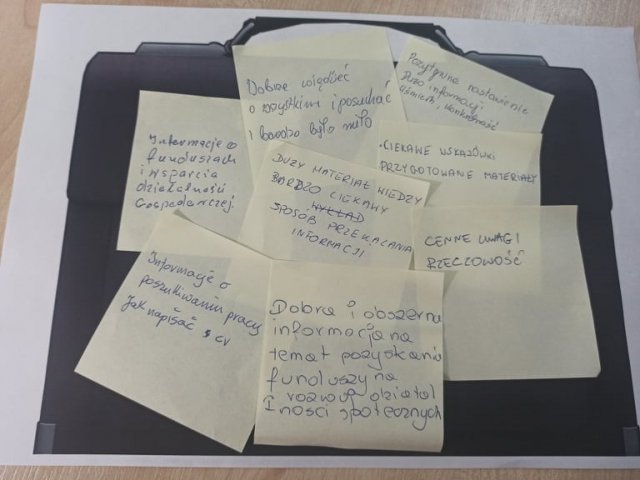 Dobrze wiedzieć
o wszystkim i posłuchać
i bardzo było miło
Pozytywne nastawienie
Dużo informacji
Uśmiech, konkretność
Informacje o
funduszach
i wsparcia
działalności
Gospodarczej
• CIEKAWE WSKAZÓWKI
PRZYGOTOWANE MATERIAŁY
DUŻY MATERIAŁ WIEDZY
BARDZO CIEKAWY
WYKŁAD
SPOSÓB PRZEKAZANIA
INFORMACJI
CENNE UWAGI
RZECZOWOŚĆ
Informacje o
poszukiwaniu pracy
Jak napisać CV
Dobra i obszerna
informacja na
temat pozyskania
funduszy na
rozwój działal
ności społecznych